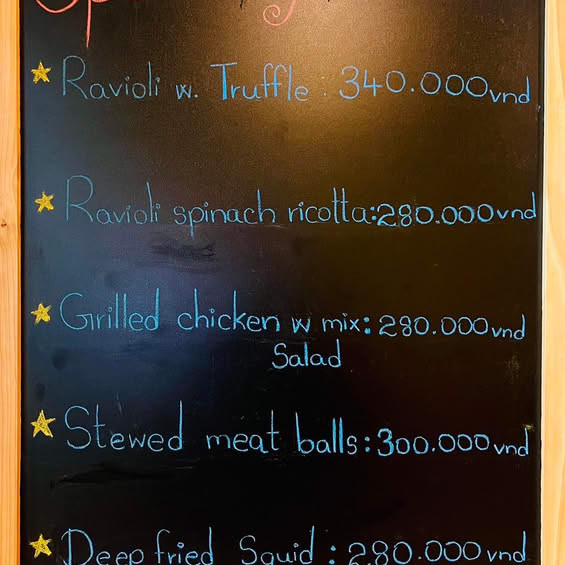 Ravioli w. Truffle : 340.000vnd
Ravioli spinach ricotta:280.000vnd
Grilled chicken w mix: 280.000vnd
Salad
Stewed meat balls: 300.000vnd
Deep fried Squid : 280.000vnd